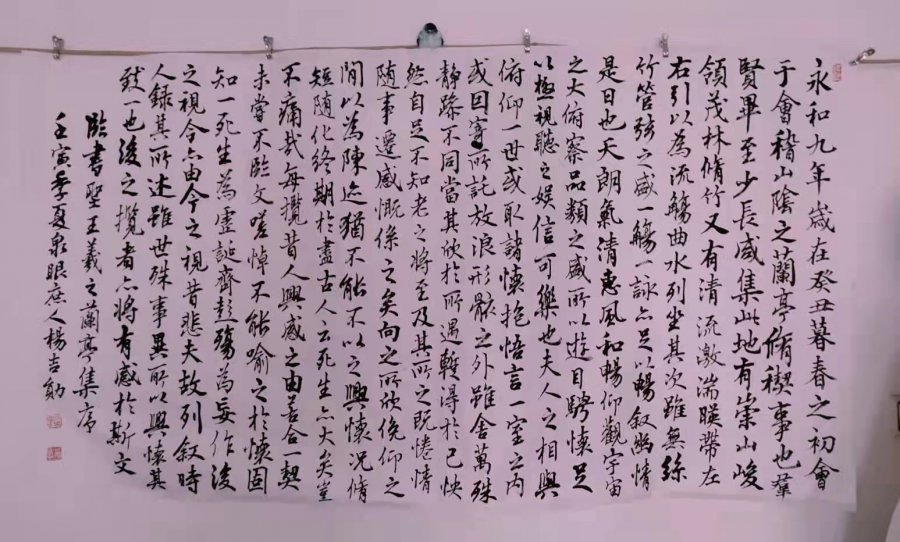 永和九年歲在癸丑暮春之初會
于會稽山陰之蘭亭脩稧事也羣
賢畢至少長咸集此地有崇山峻
領茂林脩竹又有清流激湍暎帶左
右引以為流觴曲水列坐其次雖無絲
竹管弦之盛一觴一詠亦足以暢叙幽情
是日也天朗氣清惠風和暢仰觀宇宙
之大俯察品類之盛所以遊目騁懷足
以極視聽之娛信可樂也夫人之相與
俯仰一世或取諸懷抱悟言一室之內
或因寄所託放浪形骸之外雖舍萬殊
靜躁不同當其欣於所遇暫得於己怏
然自足不知老之將至及其所之既惓情
隨事遷感慨係之矣向之所欣俛仰之
間以為陳迹猶不能不以之興懷況脩
短隨化終期於盡古人云死生亦大矣豈
不痛哉每攬昔人興感之由若合一契
未嘗不臨文嗟悼不能喻之於懷固
知一死生為虛誕齊彭殤為妄作後
之視今亦由今之視昔悲夫故列叙時
人錄其所述雖世殊事異所以興懷其
致一也後之攬者亦將有感於斯文
臨書聖王羲之蘭亭集序
壬寅季夏泉眼庶人楊吉勛